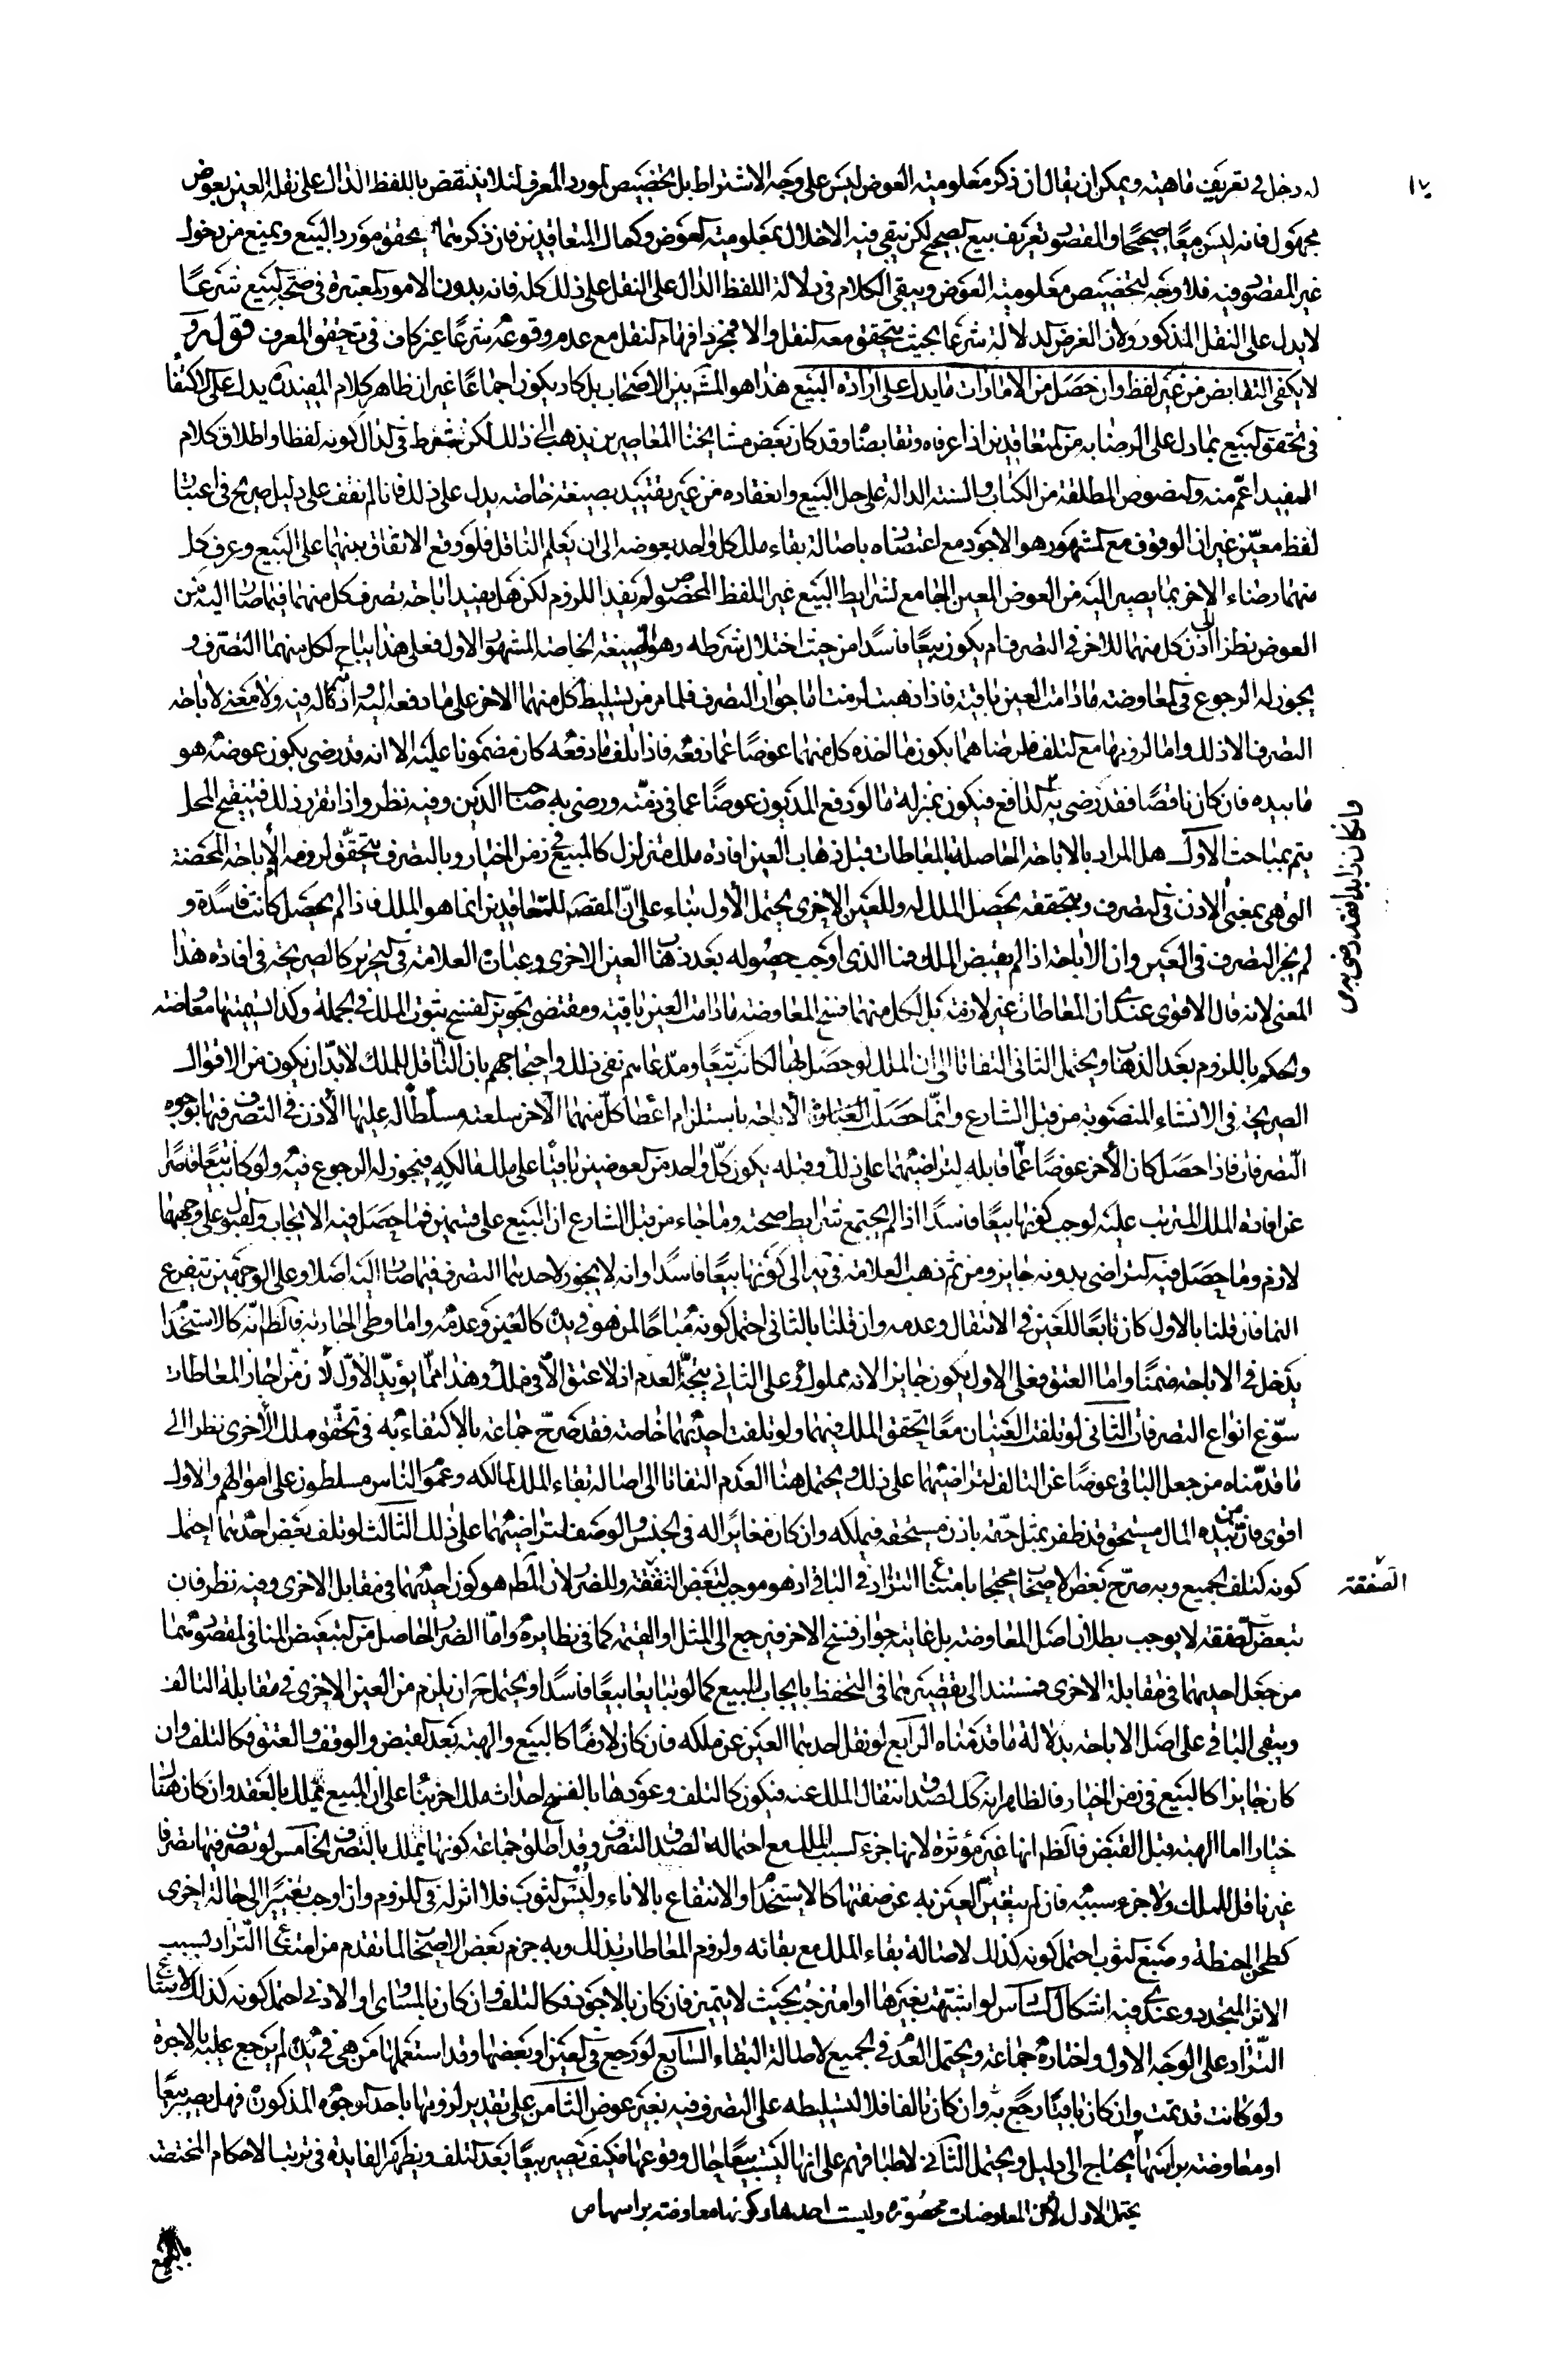 ١٧
له دخل في تعريف ماهيته ويمكن ان يقال ان ذكر معلومية العوض ليس على وجه الاشتراط بل تخصيص لمورد المعرف لئلا ينتقض باللفظ الدال على نقل العين بعوض
مجهول فانه ليس بيعا صحيحا والمقصود تعريف بيع الصحيح لكن يبقى فيه الاخلال بمعلومية العوض وكمال المتعاقدين فان ذكرهما يحقق مورد البيع ويمنع من دخول
غير المقصود فيه فلا وجه لتخصيص معلومية العوض ويبقى الكلام في دلالة اللفظ الدال على النقل على ذلك كله فانه بدون الامور المعتبرة في صحة البيع شرعا
لا يدل على النقل المذكور ولان الغرض الدلالة شرعا بحيث يتحقق معه النقل والا فمجرد افهام النقل مع عدم وقوعه شرعا غير كاف في تحقق المعرف قوله و
لا يكفي التقابض من غير لفظ وان حصل من الامارات ما يدل على ارادة البيع هذا هو المشهور بين الاصحاب بل كاد يكون اجماعا غير ان ظاهر كلام المفيد ره يدل على الاكتفاء
في تحقق البيع بما دل على الرضا به من المتعاقدين اذا عرفاه وتقابضا وقد كان بعض مشايخنا المعاصرين يذهب الى ذلك لكن يشترط في الدال كونه لفظا واطلاق كلام
المفيد اعم منه والنصوص المطلقة من الكتاب والسنة الدالة على حل البيع وانعقاده من غير تقييد بصيغة خاصة يدل على ذلك فانا لم نقف على دليل صريح في اعتبار
لفظ معين غير ان الوقوف مع المشهور هو الاجود مع اعتضاده باصالة بقاء ملك كل واحد بعوضه الى ان يعلم الناقل فلو وقع الاتفاق بينهما على البيع وعرف كل
منهما رضاء الاخر بما يصير اليه من العوض المعين الجامع لشرايط البيع غير اللفظ المخصوص لم يفد اللزوم لكن هل يفيد اباحة تصرف كل منهما فيما صار اليه من
العوض نظرا الى اذن كل منهما للاخر في التصرف ام يكون بيعا فاسدا من حيث اختلال شرطه وهو الصيغة الخاصة المشهور الاول فعلى هذا يباح لكل منهما التصرف و
يجوز له الرجوع في المعاوضة ما دامت العين باقية فاذا ذهبت لزمت اما جواز التصرف فلما مر من تسليط كل منهما الاخر على ما دفعه اليه واذنه له فيه ولا معنى لاباحة
التصرف الا ذلك واما لزومها مع التلف فلرضاهما بكون ما اخذه كل منهما عوضا عما دفعه فاذا تلف ما دفعه كان مضمونا عليه الا انه قد رضي بكون عوضه هو
ما بيده فان كان ناقصا فقد رضي به الدافع فيكون بمنزلة ما لو دفع المديون عوضا عما في ذمته ورضي به صاحب الدين وفيه نظر واذا تقرر ذلك فتنقيح المحل
يتم بمباحث الاول هل المراد بالاباحة الحاصلة بالمعاطات قبل ذهاب العين افادة ملك متزلزل كالمبيع في زمن الخيار وبالتصرف يتحقق لزومه ام الاباحة المحضة
التي هي بمعنى الاذن في التصرف وبتحققه يحصل الملك له وللعين الاخرى يحتمل الاول بناء على ان المقصد للمتعاقدين انما هو الملك فاذا لم يحصل كانت فاسدة و
لم يجز التصرف في العين وان الاباحة اذا لم يقتض الملك فما الذي اوجب حصوله بعد ذهاب العين الاخرى وعبارة العلامة في التحرير كالصريحة في افادة هذا
المعنى لانه قال الاقوى عندي ان المعاطات غير لازمة بل لكل منهما فسخ المعاوضة ما دامت العين باقية ومقتضى تجويز الفسخ ثبوت الملك في الجملة وكذا تسميتها معاوضة
والحكم باللزوم بعد الذهاب ويحتمل الثاني التفاتا الى ان الملك لو حصل بها لكانت بيعا ومدعاهم نفي ذلك واحتجاجهم بان الناقل للملك لا بد ان يكون من الاقوال
الصريحة في الانشاء المنصوبة من قبل الشارع وانما حصلت الاباحة باستلزام اعطاء كل منهما الاخر سلعته مسلطا له عليها الاذن في التصرف فيها بوجوه
التصرفات فاذا حصل كان الاخر عوضا عما قابله لتراضيهما على ذلك وقبله يكون كل واحد من العوضين باقيا على ملك مالكه فيجوز له الرجوع فيه ولو كانت بيعا قاصرا
عن افادة الملك المترتب عليه لوجب كونها بيعا فاسدا اذ لم يجتمع شرايط صحته وما جاء من قبل الشارع ان البيع على قسمين فما حصل فيه الايجاب والقبول على وجههما
لازم وما حصل فيه التراضي بدونه جايز ومن ثم ذهب العلامة في ية الى كونها بيعا فاسدا وانه لا يجوز لاحدهما التصرف فيما صار اليه اصلا وعلى الوجهين يتفرع
النما فان قلنا بالاول كان تابعا للعين في الانتقال وعدمه وان قلنا بالثاني احتمل كونه مباحا لمن هو في يده كالعين وعدمه واما وطي الجارية فالظاهر انه كالاستخدام
يدخل في الاباحة ضمنا واما العتق فعلى الاول يكون جايزا لانه مملوك وعلى الثاني يتجه العدم اذ لا عتق الا في ملك وهذا مما يؤيد الاول لان من اجاز المعاطات
سوغ انواع التصرفات الثاني لو تلفت العينان معا تحقق الملك فيهما ولو تلفت احديهما خاصة فقد صرح جماعة بالاكتفاء به في تحقق ملك الاخرى نظرا الى
ما قدمناه من جعل الباقي عوضا عن التالف لتراضيهما على ذلك ويحتمل هنا العدم التفاتا الى اصالة بقاء الملك لمالكه وعموم الناس مسلطون على اموالهم والاول
اقوى فان من بيده المال مستحق قد ظفر بمثل حقه باذن مستحقه فيملكه وان كان مغايرا له في الجنس والوصف لتراضيهما على ذلك الثالث لو تلف بعض احديهما احتمل
كونه كتلف الجميع وبه صرح بعض الاصحاب محتجا بامتناع التراد في الباقي اذ هو موجب لتبعض الصفقة وللضرر لان المطلوب هو كون احديهما في مقابل الاخرى وفيه نظر فان
تبعض الصفقة لا يوجب بطلان اصل المعاوضة بل غايته جواز فسخ الاخر فيرجع الى المثل او القيمة كما في نظايره واما الضرر الحاصل من التبعيض المنافي لمقصودهما
من جعل احديهما في مقابلة الاخرى فمستند الى تقصيرهما في التحفظ بايجاب البيع كما لو تبايعا بيعا فاسدا ويحتمل ح ان يلزم من العين الاخرى في مقابلة التالف
ويبقى الباقي على اصل الاباحة بدلالة ما قدمناه الرابع لو نقل احديهما العين عن ملكه فان كان لازما كالبيع والهبة بعد القبض والوقف والعتق فكالتلف وان
كان جايزا كالبيع في زمن الخيار فالظاهر انه كك لصدق انتقال الملك عنه فيكون كالتلف وعودها بالفسخ احداث ملك اخر بناء على ان المبيع يملك بالعقد وان كان هناك
خيار اما الهبة قبل القبض فالظاهر انها غير مؤثرة لانها جزء السبب المملك مع احتماله لصدق التصرف وقد اطلق جماعة كونها تملك بالتصرف الخامس لو تصرف فيها تصرفا
غير ناقل للملك ولا جزء سببه فان لم يتغير العين به عن صفتها كالاستخدام والانتفاع بالاناء ولبس الثوب فلا اثر له في اللزوم وان اوجب تغييرا الى حالة اخرى
كطحن الحنطة وصبغ الثوب احتمل كونه كذلك لاصالة بقاء الملك مع بقائه ولزوم المعاطات بذلك وبه جزم بعض الاصحاب لما تقدم من امتناع التراد بسبب
الاثر المتجدد وعندي فيه اشكال السادس لو اشتبهت بغيرها او امتزجت بحيث لا يتميز فان كان بالاجود فكالتلف وان كان بالمساوي او الادنى احتمل كونه كذلك لامتناع
التراد على الوجه الاول واختاره جماعة ويحتمل العدم في الجميع لاصالة البقاء السابع لو رجع في العين او بعضها وقد استعملها من هي في يده لم يرجع عليه بالاجرة
ولو كانت قد نمت وان كان باقيا رجع به وان كان تالفا فلا لتسليطه على التصرف فيه بغير عوض الثامن على تقدير لزومها باحد الوجوه المذكورة فهل يصير بيعا
او معاوضة براسها يحتاج الى دليل ويحتمل الثاني لاطباقهم على انها ليست بيعا حال وقوعها فكيف تصير بيعا بعد التلف ويظهر الفايدة في ترتب الاحكام المختصة
يحتمل الاول لان المعاوضات محصورة وليست احدها وكونها معاوضة براسها ص
بالبيع
وان كان زايدا فقد رضي به
الصفقة